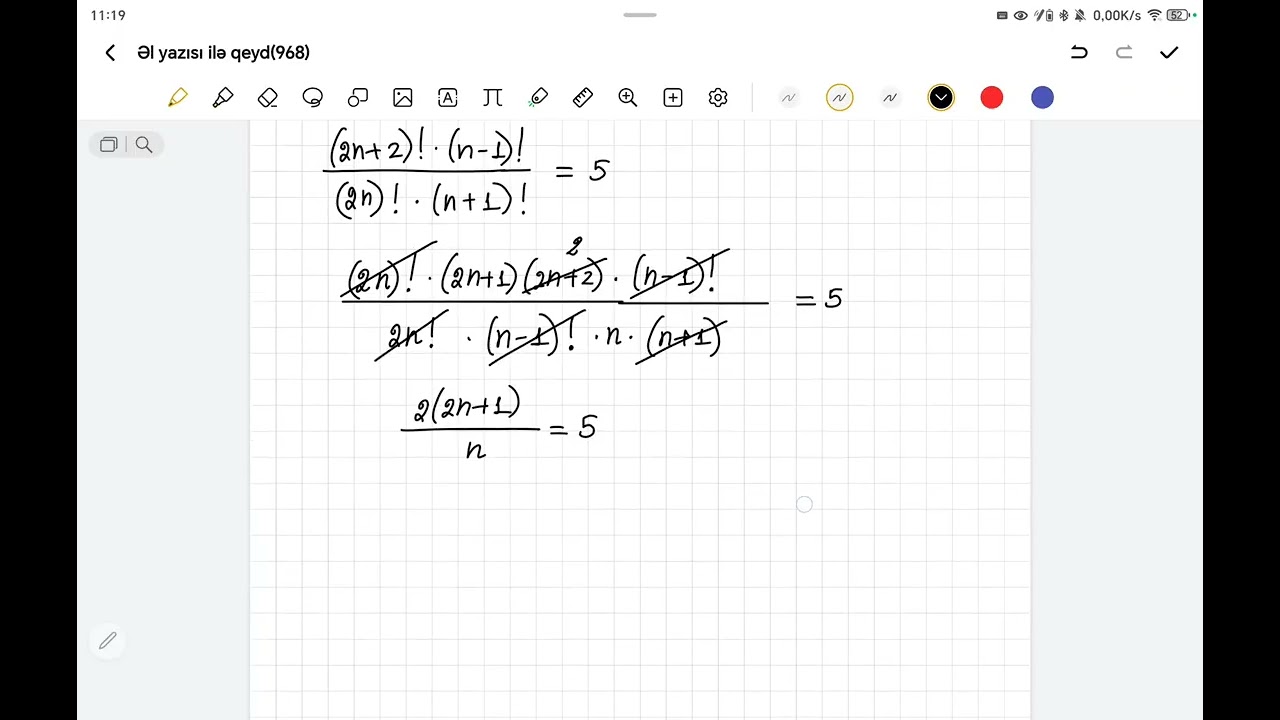 11:19 0,00K/s 52
Əl yazısı ilə qeyd(968)
A
(2n+2)! · (n-1)! / (2n)! · (n+1)! = 5
2
(2n)! · (2n+1)(2n+2) · (n-1)! / 2n! · (n-1)! · n · (n+1) = 5
2(2n+1) / n = 5